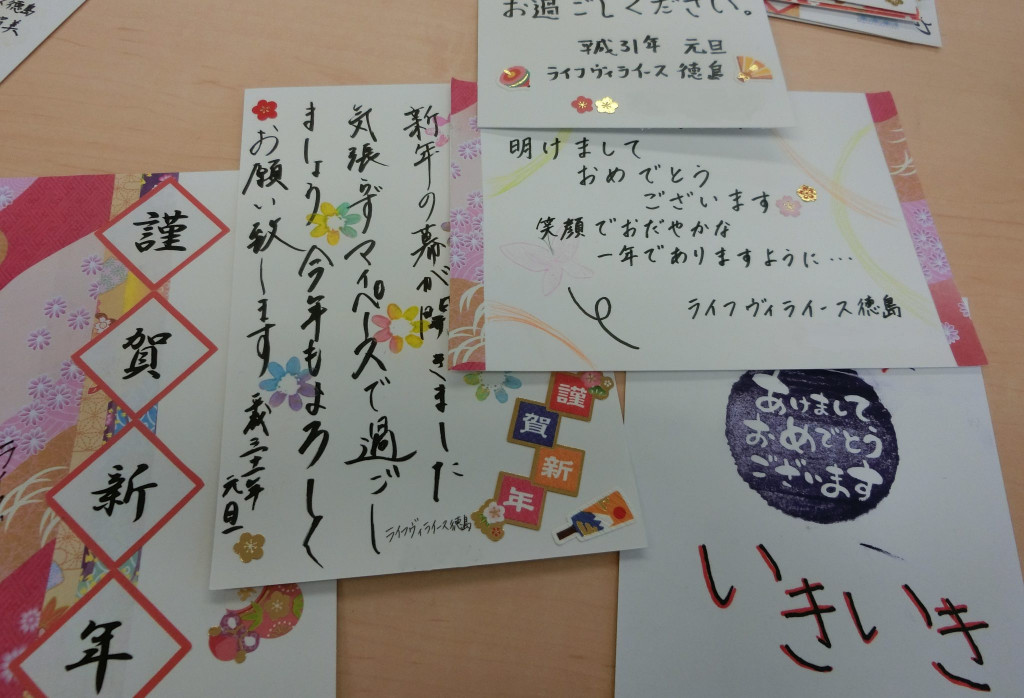 徳島
美
お過ごしください。
平成31年 元旦
ライフヴィライース 徳島
明けまして
おめでとう
ございます
笑顔でおだやかな
一年でありますように…
ライフヴィライース徳島
新年の幕が開きました
気張らずマイペースで過ごし
ましょう 今年もよろしく
お願い致します
三十一年
元旦
ライフヴィライース徳島
謹
賀
新
年
謹
賀
新
年
あけまして
おめでとう
ございます
いきいき